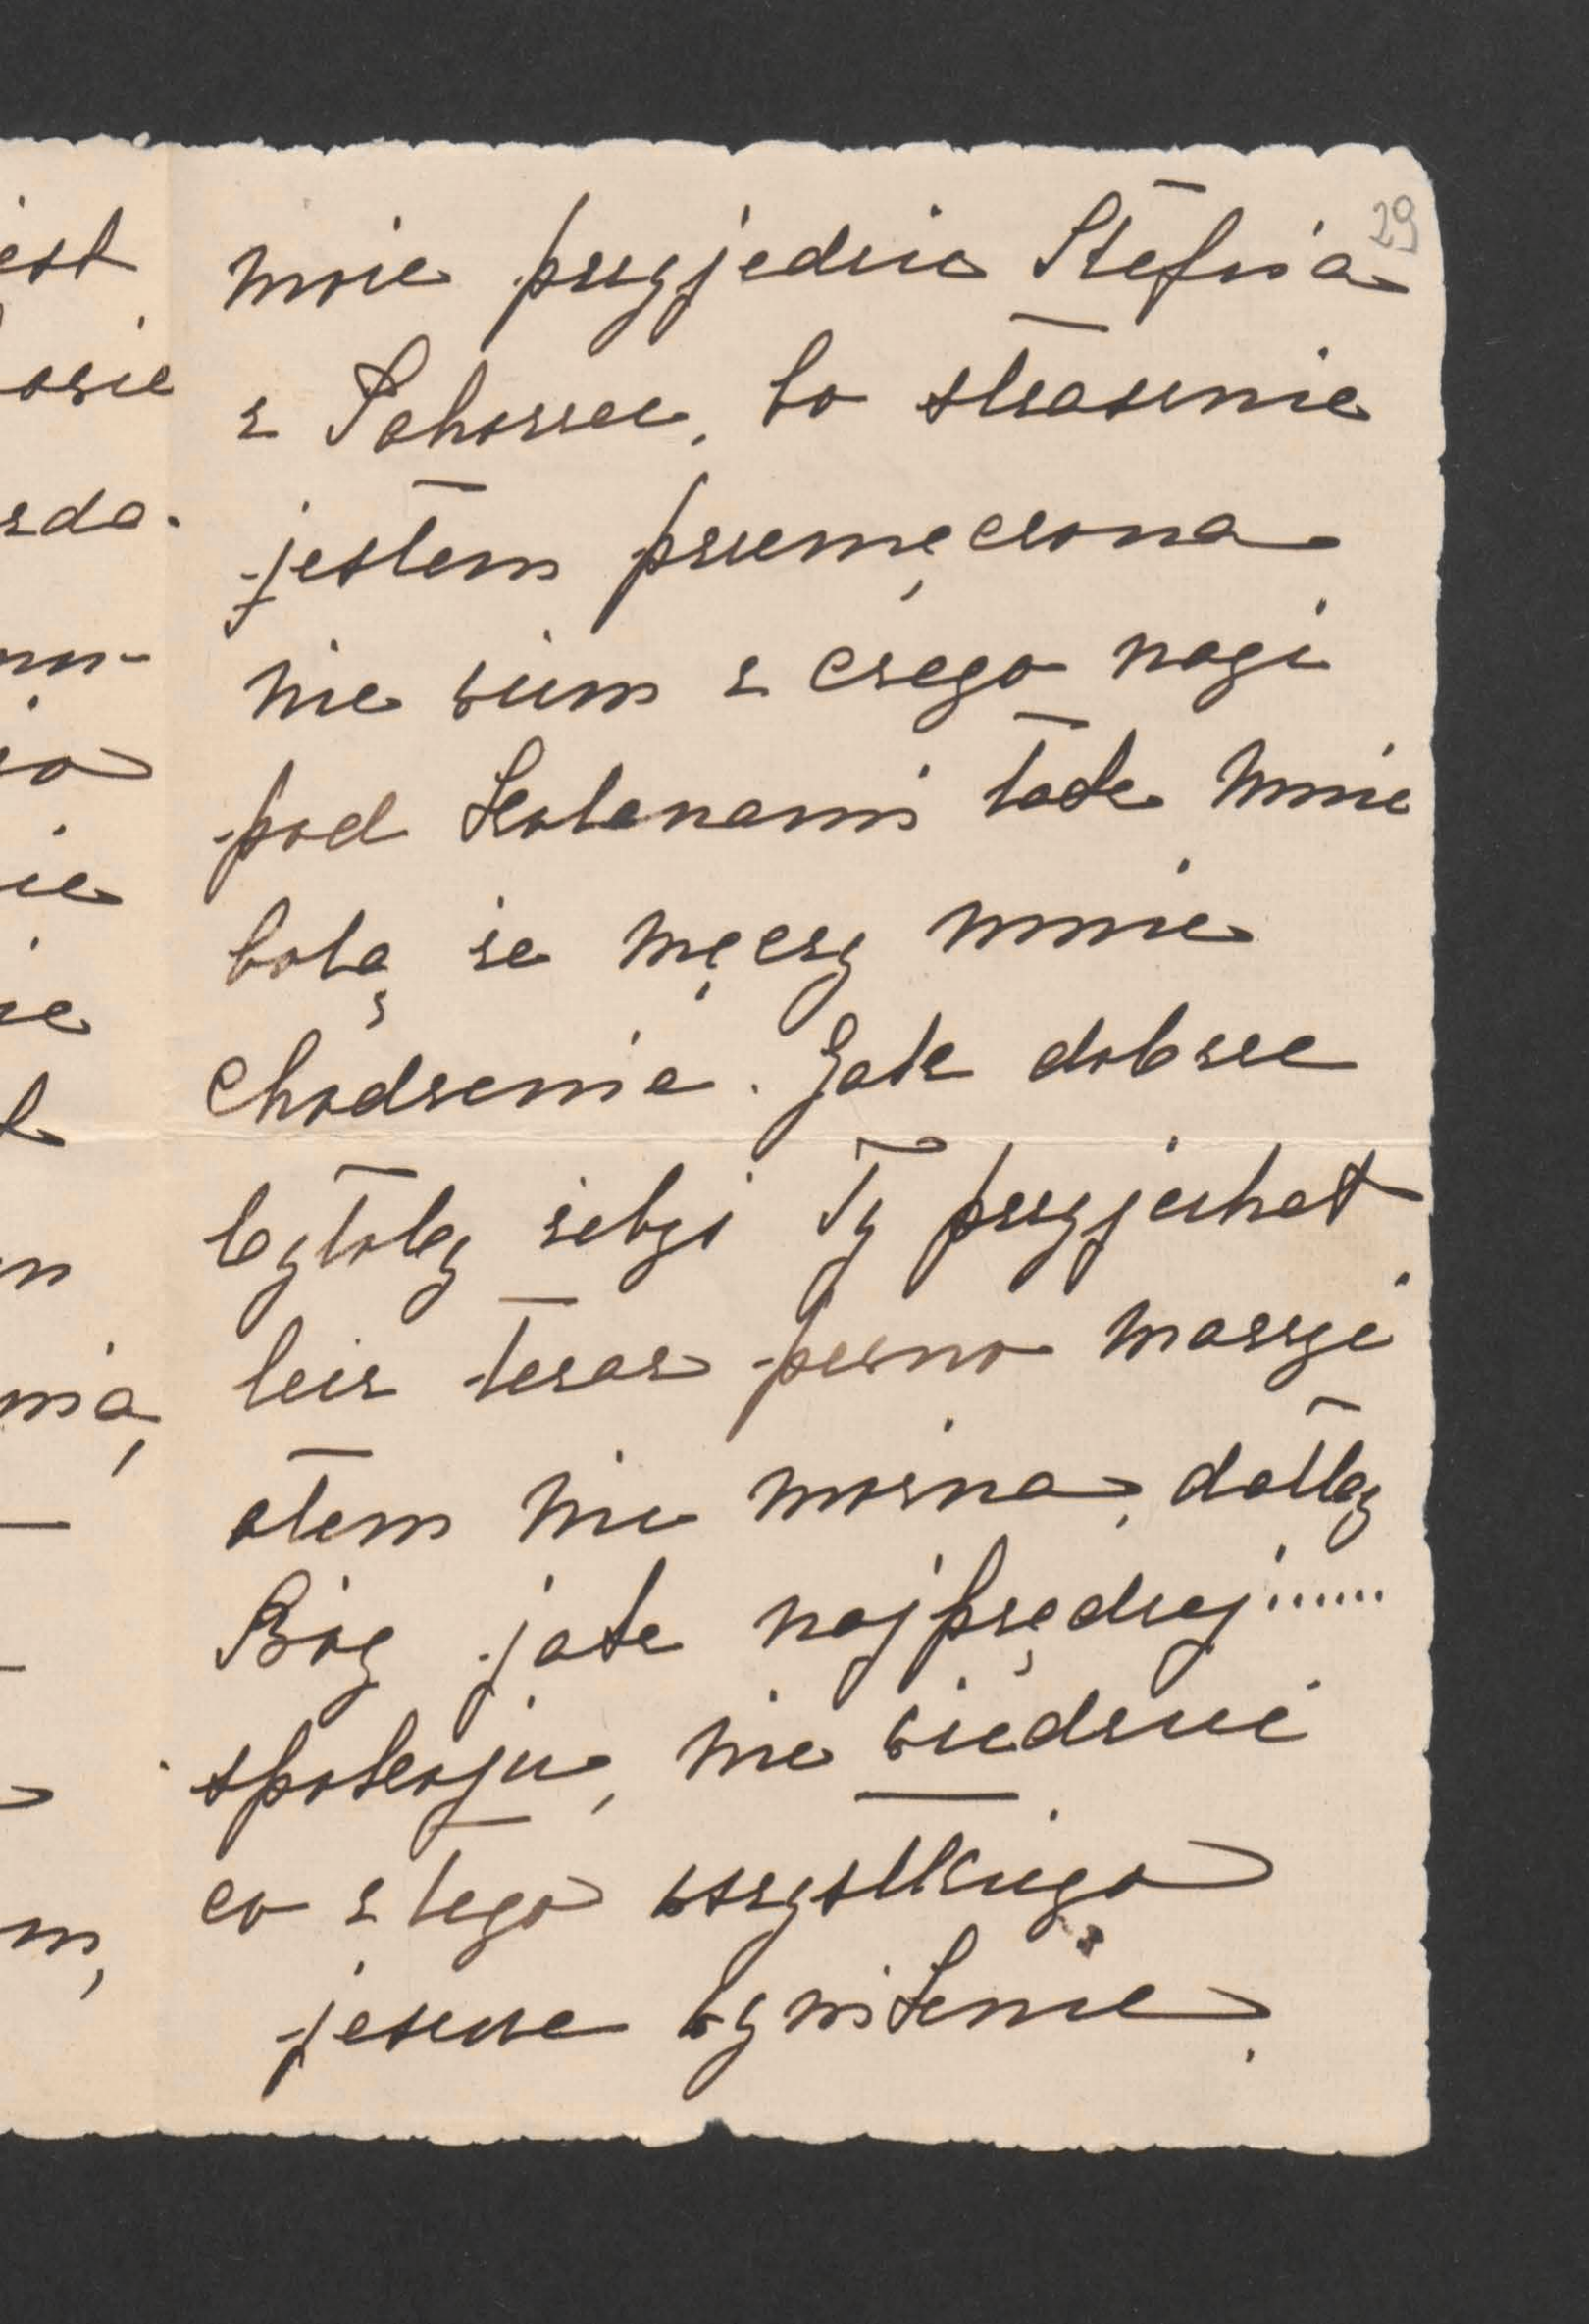 est
osie
zda-
ie
nią,
m,
29
może przyjedzie Stefnia
z, bo strasznie
jestem przemęczona
nie wiem z czego nogi
pod kolanami tak mnie
bolą że męczy mnie
chodzenie. Jak dobrze
byłoby żebyś Ty przyjechał
lecz teraz pewno marzyć
otem nie można, dałby
Bóg jak najprędzej......
spokoju, nie wiedzieć
co z tego wszystkiego
jeszcze wyniknie.